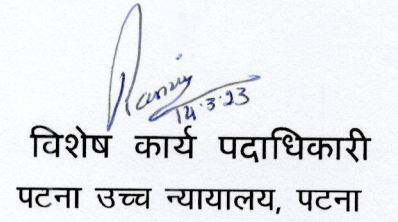 14.3.23
विशेष कार्य पदाधिकारी
पटना उच्च न्यायालय, पटना